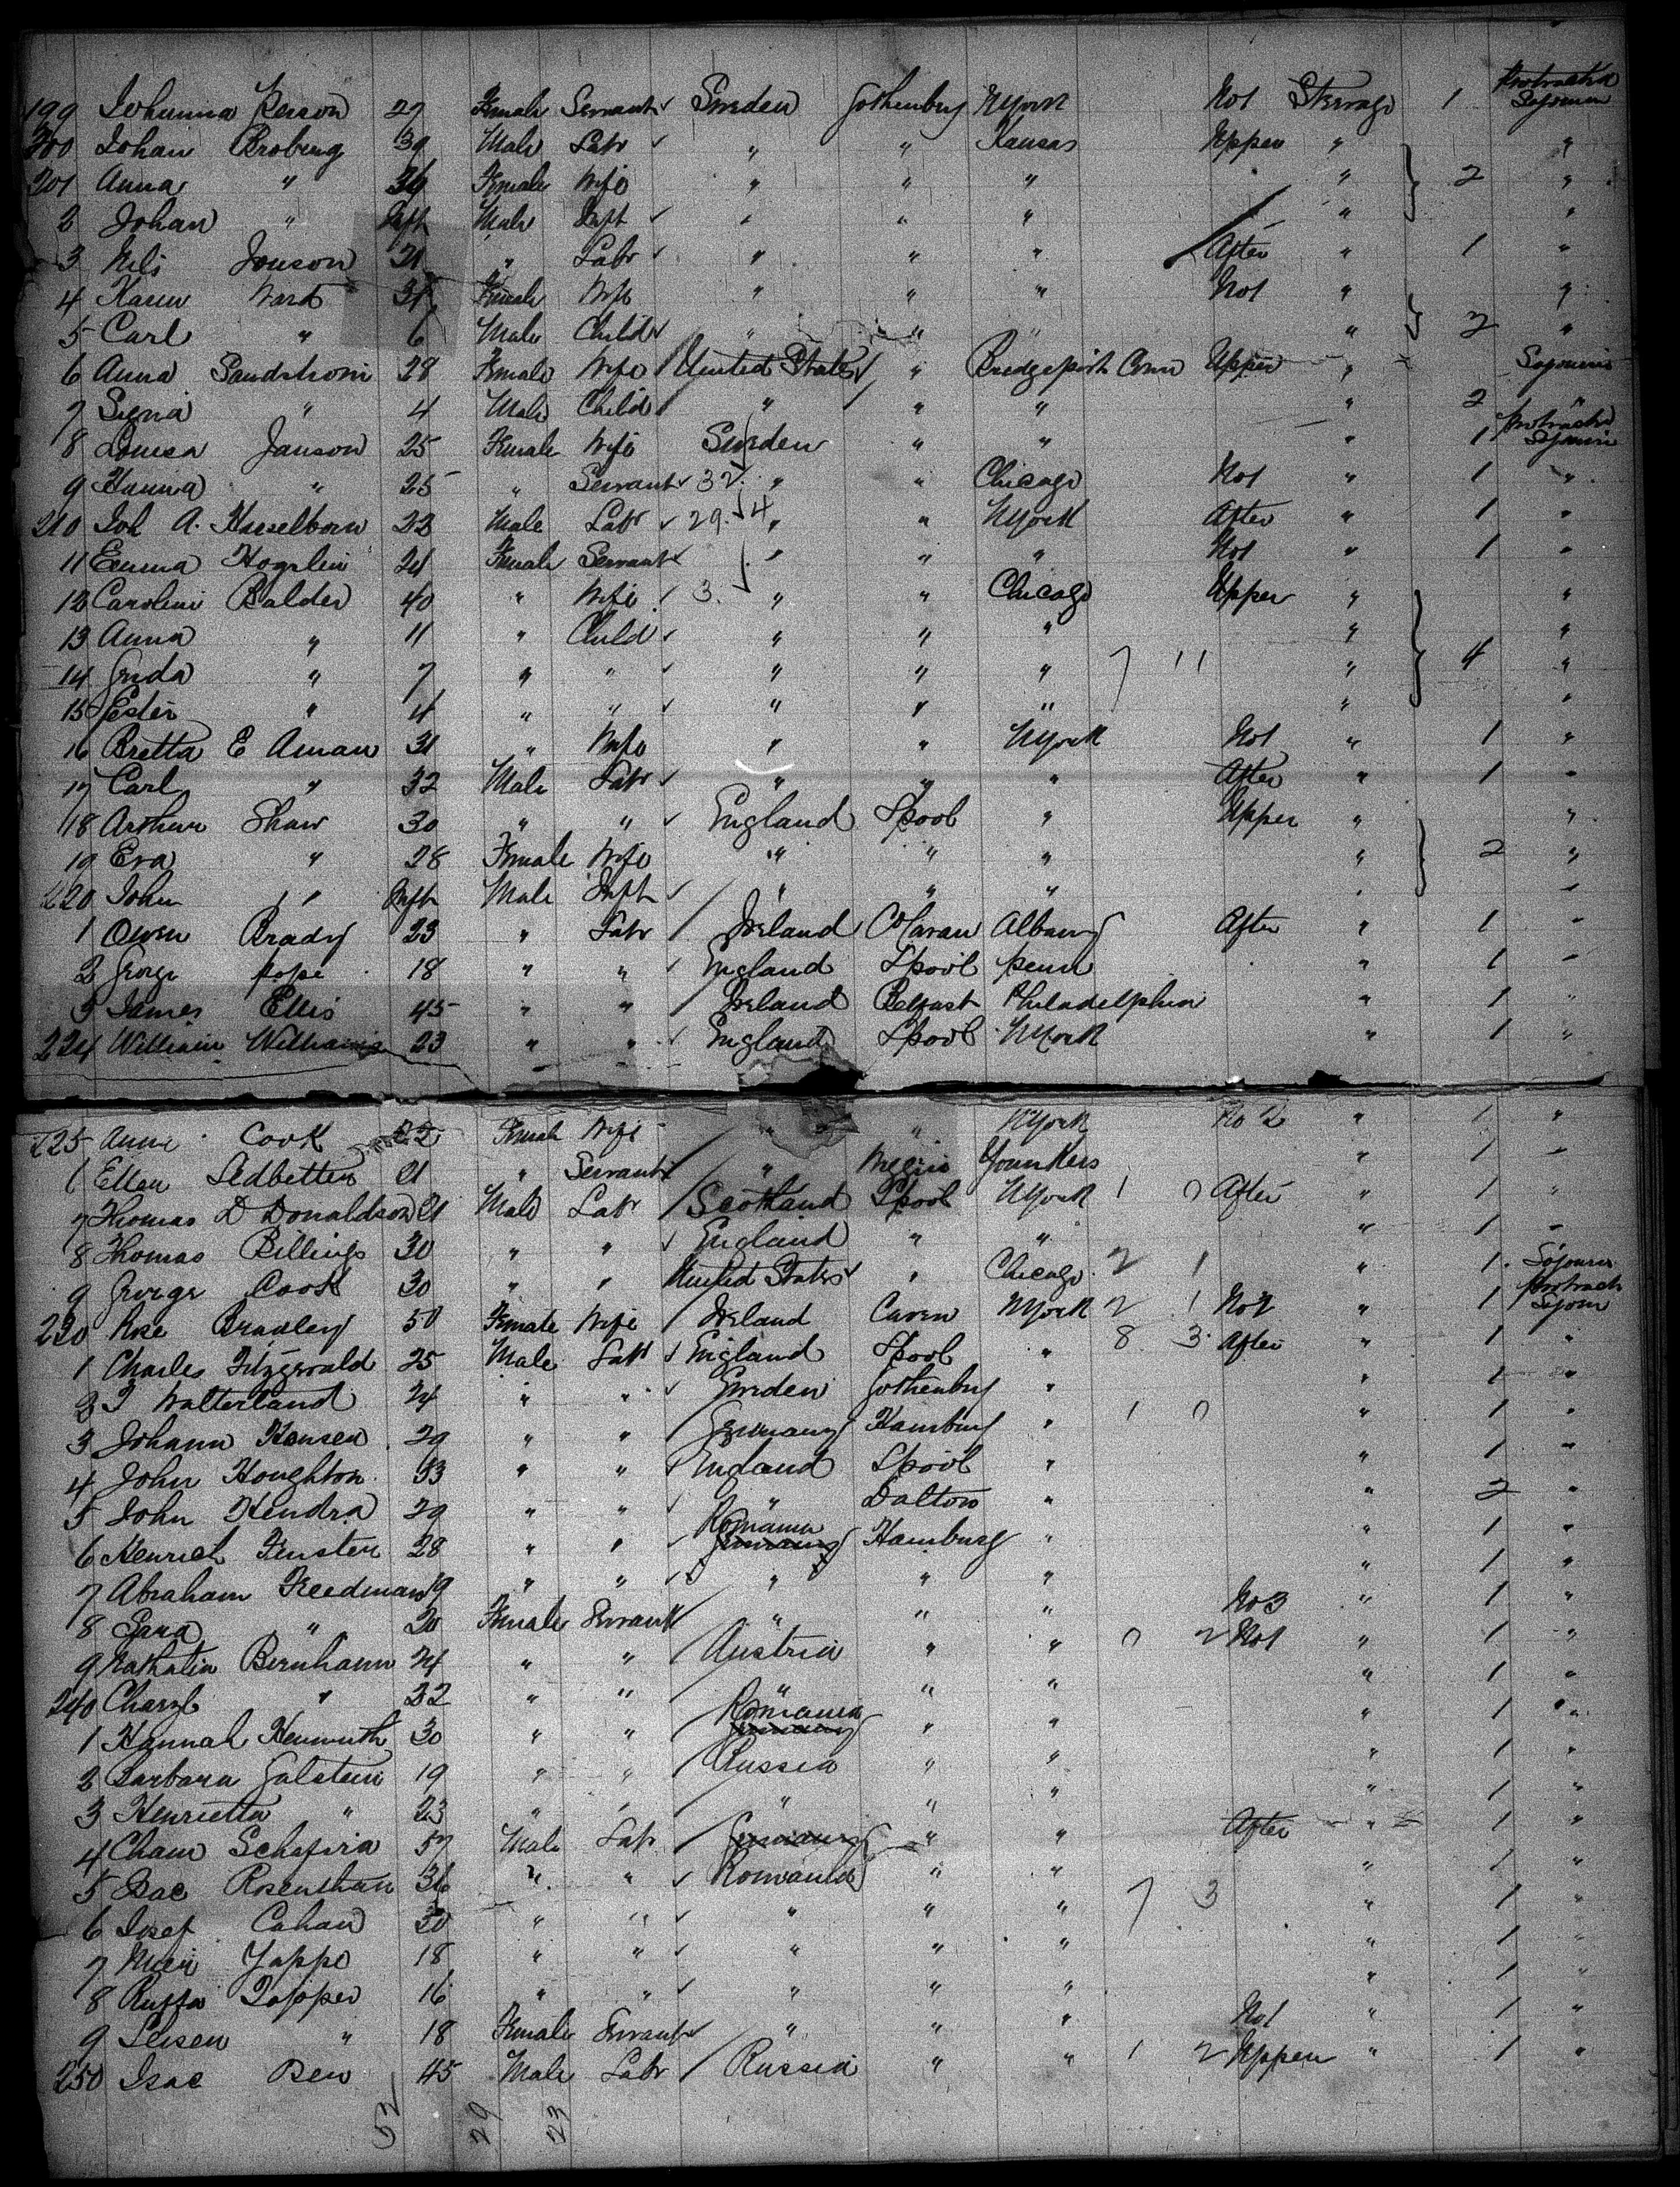 199 Johanna Person 27 Female Servant Sweden Gothenburg NYork No1 Steerage 1 Protracted Sojourn
200 Johan Broberg 39 Male Labr " " Kansas Upper " "
201 Anna " Female Wife " " " " 2 "
2 Johan " Inft Male Inft " " " " "
3 Nels Jonson 21 " Labr " " " After " 1 "
4 Karen Ward Female Wife " " " No1 " "
5 Carl " 6 Male Child " " " " 2 "
6 Anna Sandstrom 28 Female Wife United States " Bridgeport Conn Upper " Sojourn
7 Signa " 4 Male Child " " " " 2 "
8 Louisa Janson 25 Female Wife Sweden " " " 1 Protracted Sojourn
9 Hanna " 25 " Servant 32 " " Chicago No1 " 1 "
210 Joh A. Hasselborn 22 Male Labr 29. 4 " " NYork After " 1 "
11 Emma Hogelin 24 Female Servant " " " No1 " 1 "
12 Carolini Balder 40 " Wife 3. " " Chicago Upper " "
13 Anna " 11 " Child " " " " "
14 Gerda " 7 " " " " " 7 11 " 4 "
15 Ester " 4 " " " " " " "
16 Bretta E Aman 31 " Wife " " NYork No1 " 1 "
17 Carl " 32 Male Labr " " " After " 1 "
18 Arthur Shaw 30 " " England Lpool " Upper " "
19 Eva " 28 Female Wife " " " " 2 "
220 John " Inft Male Inft " " " " "
1 Owen Brady 23 " Labr Ireland Albany After " 1 "
2 George Pope 18 " " England Lpool Penn " 1 "
3 James Ellis 45 " " Ireland Belfast Philadelphia " 1 "
224 William Williams 23 " " England Lpool NYork " 1 "
225 Anni Cook 22 Female Wife " " NYork No 2 " 1 "
Ellen Ledbetter 21 " Servant " Younkers " 1 "
7 Thomas D Donaldson 21 Male Labr Scotland Lpool NYork 1 0 After " 1 "
8 Thomas Billings 30 " " England " " " 1 "
9 George Cook 30 " " United States " Chicago 2 1 " 1 Sojourn
230 Rose Bradley 50 Female Wife Ireland Caven NYork 2 1 No2 " 1 Protract Sojour
1 Charles Fitzgerald 25 Male Labr England Lpool " 8 3 After " 1 "
2 J Walterland 24 " " Sweden Gothenburg " " 1 "
3 Johann Hansen 29 " " Germany Hamburg " 1 0 " 1 "
4 John Houghton 33 " " England Lpool " " 1 "
5 John Hendra 29 " " " Dalton " " 2 "
6 Henrich Finster 28 " " Romania Germany Hamburg " " 1 "
7 Abraham Freedman 19 " " " " " " 1 "
8 Sara " 20 Female Servant " " " No3 " 1 "
9 Nathalia Bernhann 24 " " Austria " " 0 2 No1 " 1 "
240 " 22 " " " " " " 1 "
1 Hannah 30 " " Romania Germany " " " 1 "
2 Barbara Galstein 19 " " Russia " " " 1 "
3 Henrietta " 23 " " " " " " 1 "
4 Cham Schafira 57 Male Labr Germany " " After " 1 "
5 Isac Rosenthan 36 " " Romania " " " 1 "
6 Josef Cahan 30 " " " " " 7 3 " 1 "
7 Yappo 18 " " " " " " 1 "
8 16 " " " " " " 1 "
9 " 18 Female Servant " " " No1 " 1 "
250 Isac Ben 45 Male Labr Russia " " 1 2 Upper " 1 "
53 29 23